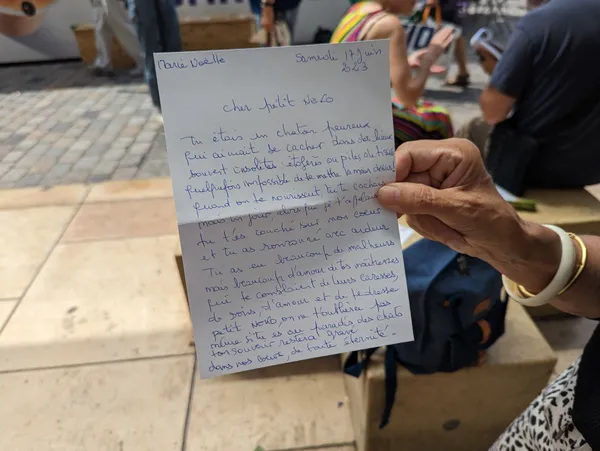 Marie Noëlle
Samedi 17 Juin
2023
cher petit NONO
Tu étais un chaton peureux
qui aimait se cacher dans des lieux
souvent insolites étagères ou piles de
quelquefois impossible de te mettre la main dessus
Quand on te nourrissait tu te cachais
mais un jour, alors que je t'appelais
tu t'es couché sur mon coeur
et tu as ronronné avec ardeur
Tu as eu beaucoup de malheurs
mais beaucoup d'amour de tes maîtresses
qui te comblaient de leurs caresses,
de soins, d'amour et de tendresse
petit NONO, on ne t'oubliera pas
même si tu es au paradis des chats
ton souvenir restera gravé
dans nos coeurs, de toute éternité.